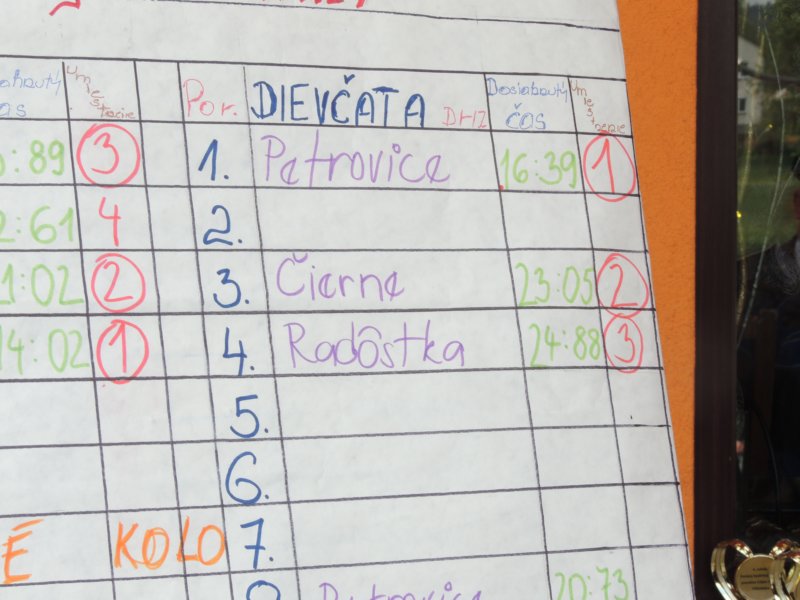 Por. DIEVČATA DHZ Dosiahnutý čas Umiestnenie
:89 3 1. Petrovice 16:39 1
2:61 4 2.
1:02 2 3. Čierne 23:05 2
14:02 1 4. Radôstka 24:88 3
5.
6.
É KOLO 7.
20:73